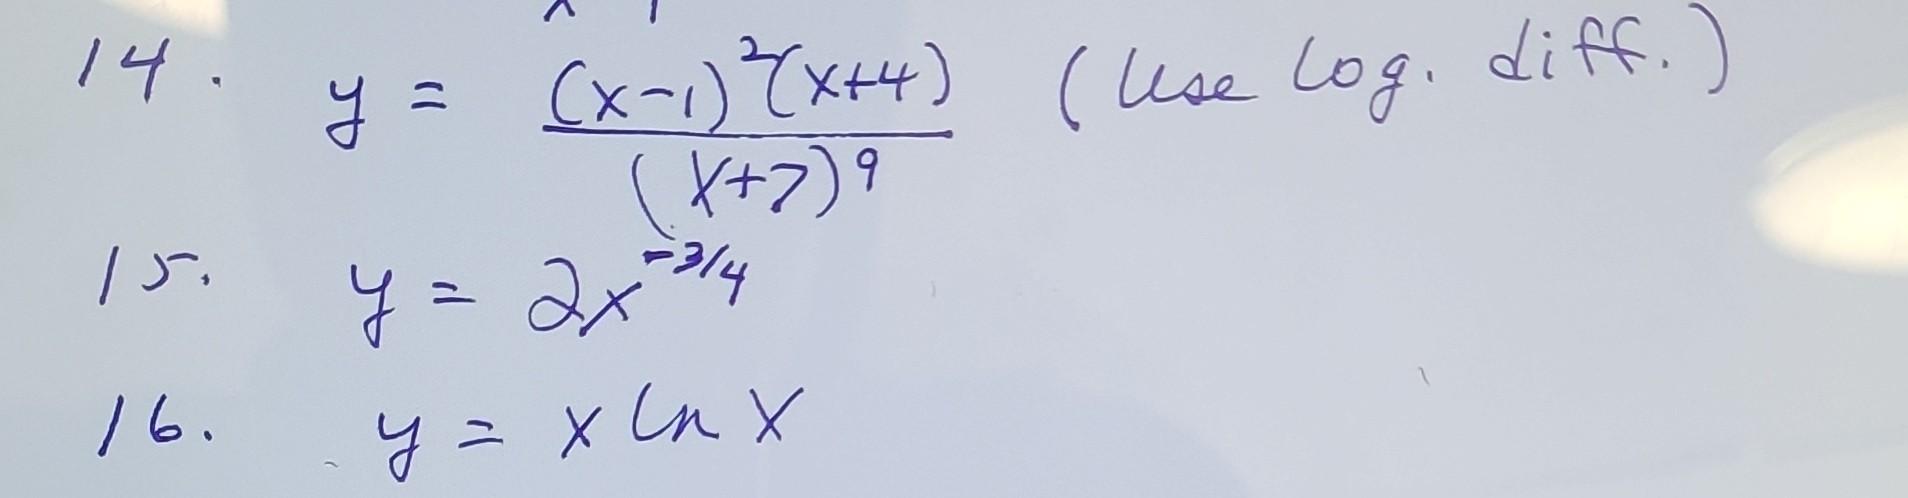 14. y = (x-1)²(x+4) / (x+7)⁹ (Use log. diff.)
15. y = 2x^-3/4
16. y = x ln x